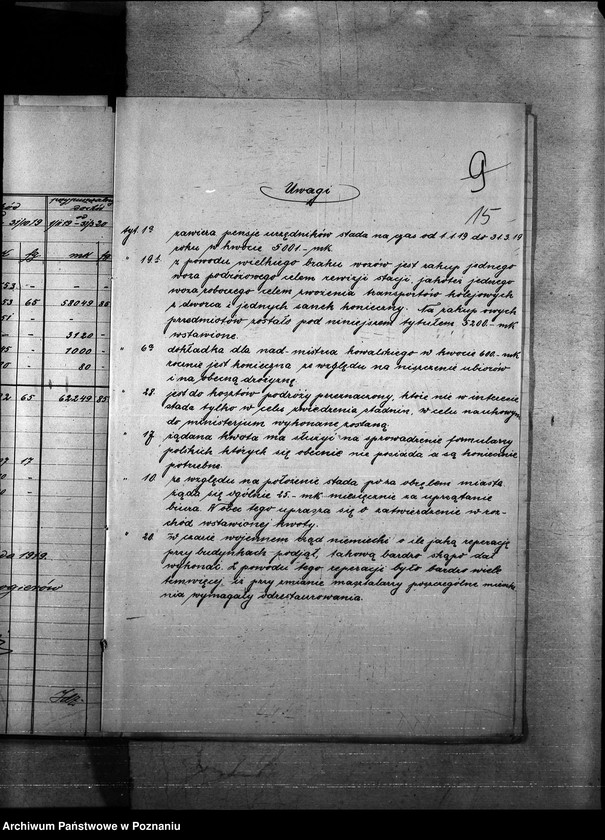 9
15
Uwagi
tyt 1º zawiera pensje urzędników stada na czas od 1.1.19 do 31.3.19
roku w kwocie 5001.- mk.
" 19. z powodu wielkiego braku wozów jest zakup jednego
woza podróżowego celem rewizji stacji, jakoteż jednego
woza roboczego celem zwożenia transportów kolejowych
z dworca i jednych sanek konieczny. Na zakup owych
przedmiotów zostało pod niniejszem tytułem 5200.- mk
wstawione.
" 6º dokładka dla nad-mistrza kowalskiego w kwocie 600.- mk
rocznie jest konieczna ze względu na niszczenie ubiorów
i na obecną drożyznę
" 28. jest do kosztów podróży przeznaczony, któie nie w interesie
stada tylko w celu zwiedzenia stadnin, w celu naukowym
do ministerjum wykonane zostaną.
" 17. żądana kwota ma służyć na sprowadzenie formularzy
polskich których się obecnie nie posiada a są koniecznie
potrzebne.
" 10. ze względu na położenie stada poza obrębem miasta
żąda się ogólnie 25.- mk miesięcznie za uprzątanie
biura. Wobec tego uprasza się o zatwierdzenie w roz-
chód wstawionej kwoty.
" 20. W czasie wojennem rząd niemiecki o ile jaką reperację
przy budynkach podjął, takową bardzo skąpo dał
wykonać. Z powodu tego reperacji było bardzo wiele
temwięcej, że przy zmianie masztalarzy poszczególne mieszka
nia wymagały odrestaurowania.
31/10 19
1/11 19 - 31/3 20
mk
53 65 58049 85
3120 -
1000 -
80 -
2 65 62249 85
17
1919.
ogierów
Archiwum Państwowe w Poznaniu